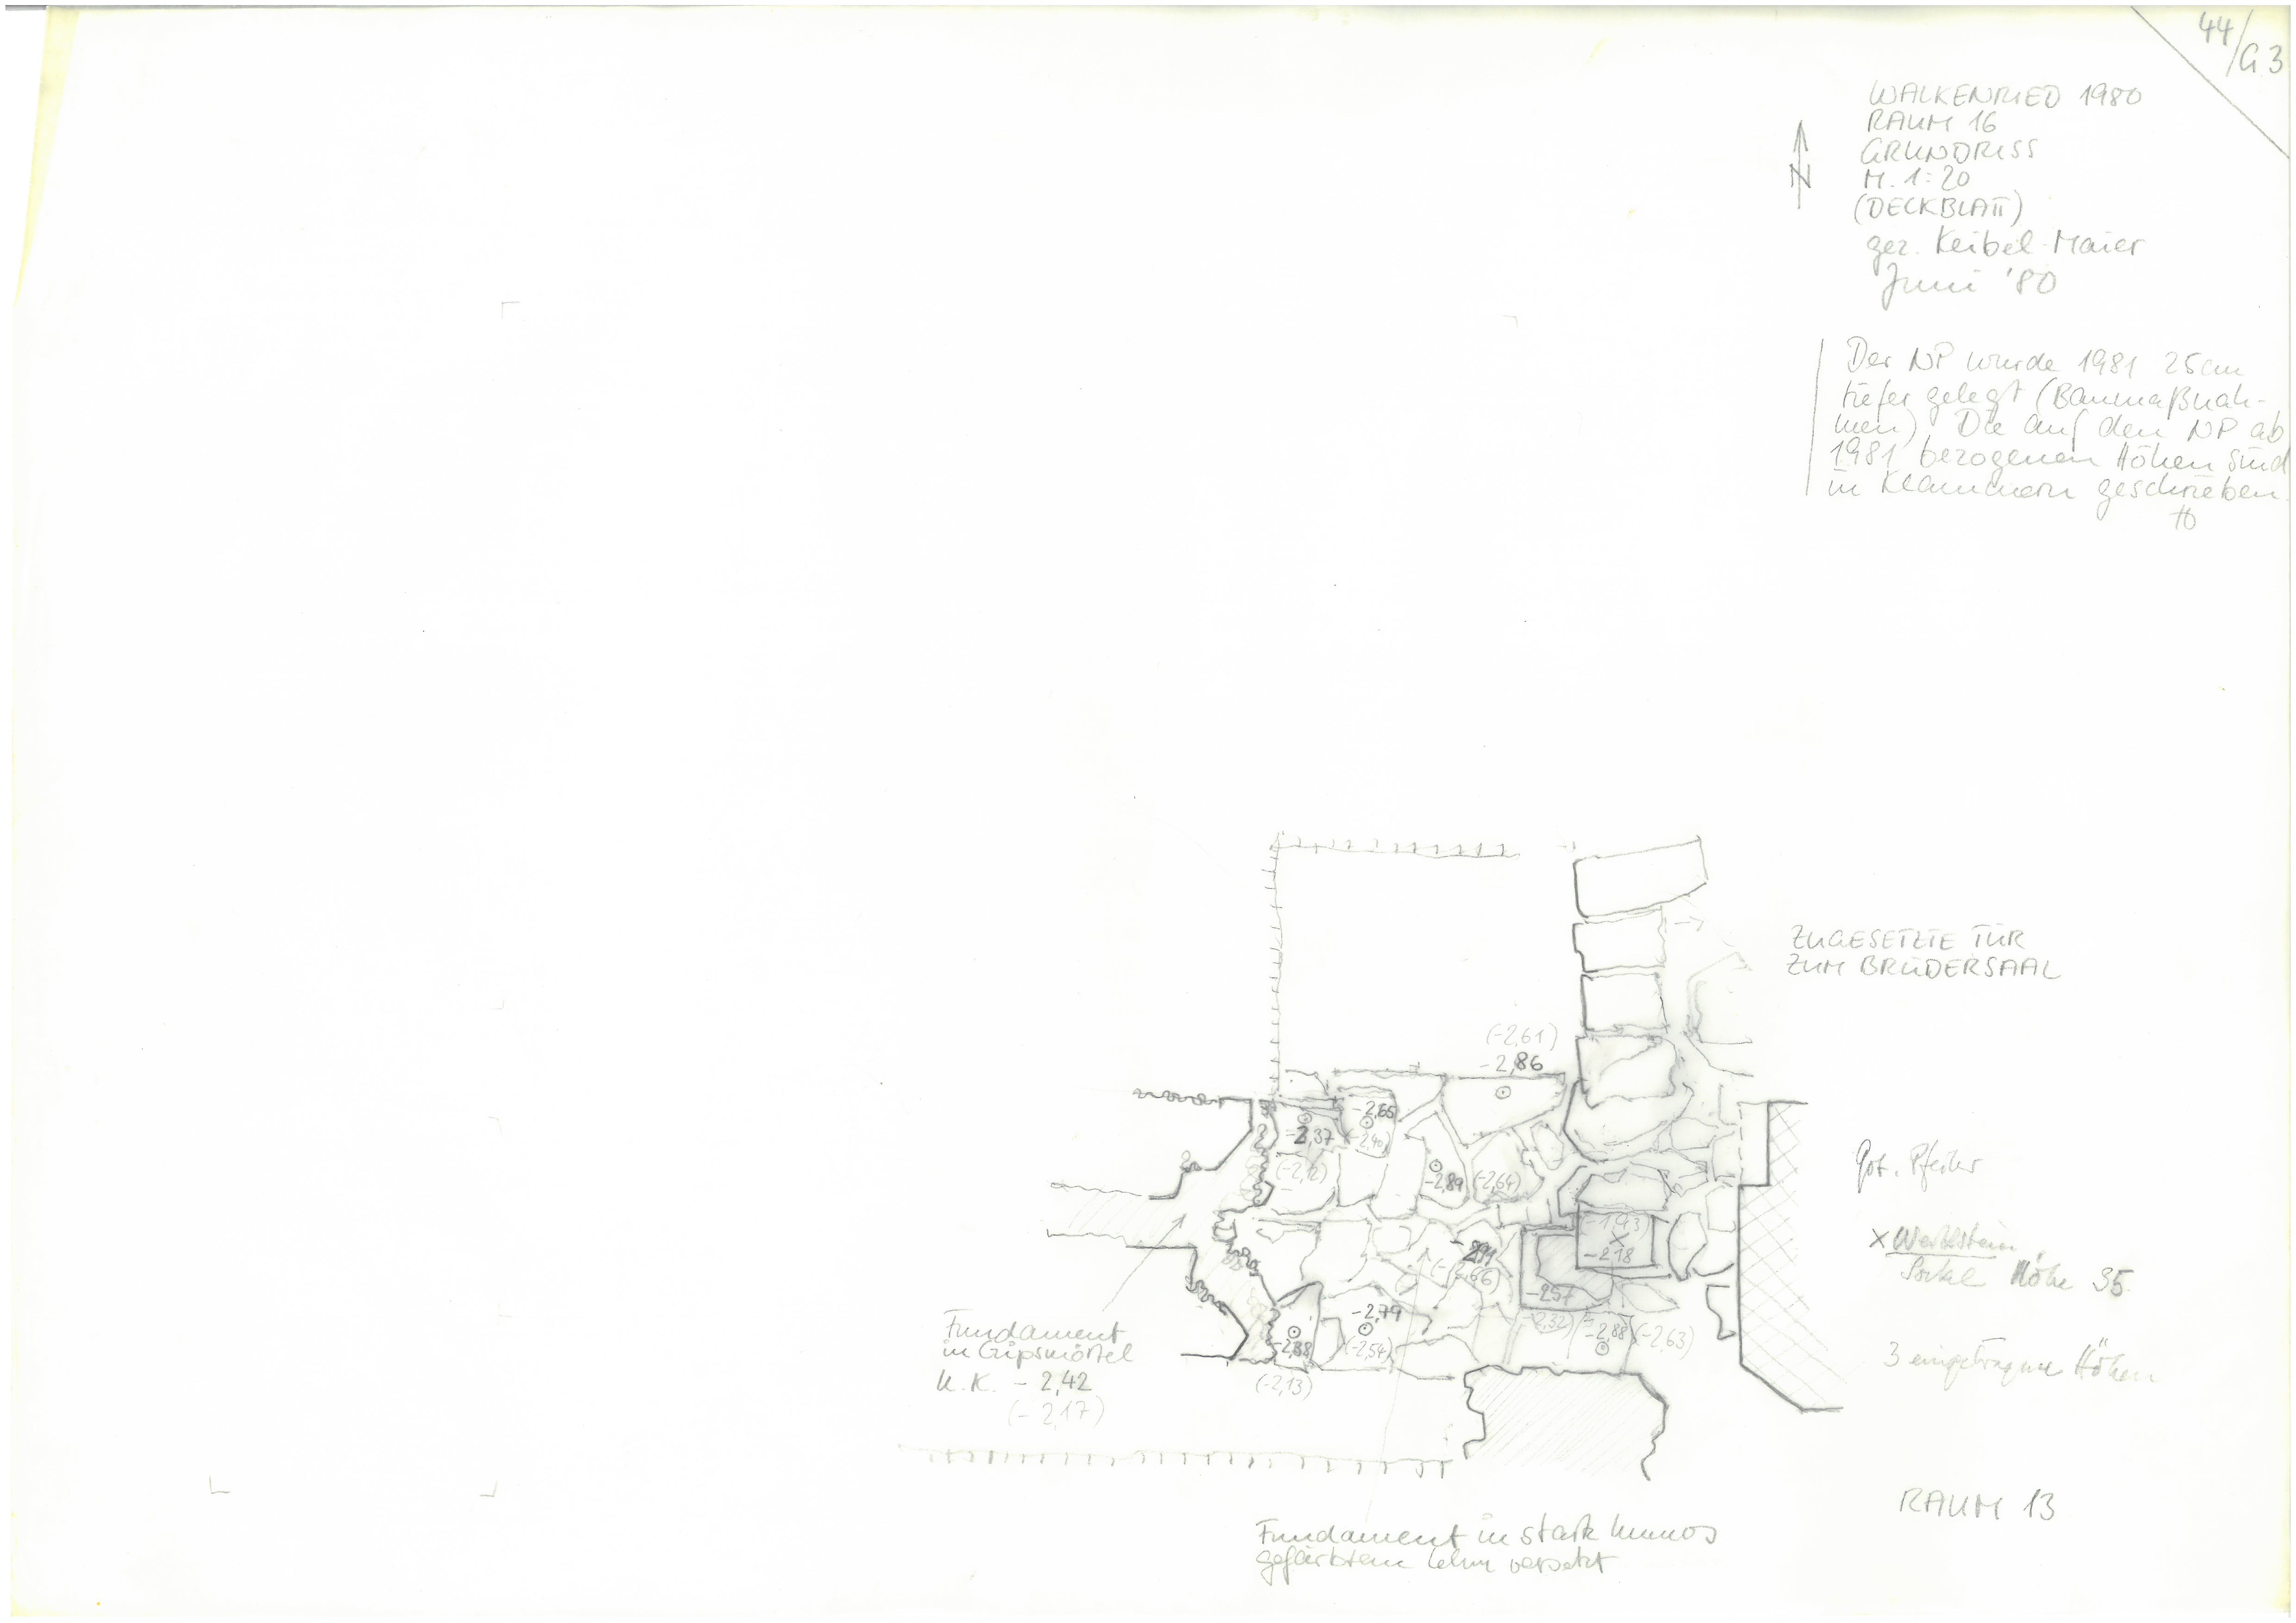 44/G3
WALKENRIED 1980
RAUM 16
GRUNDRISS
M. 1:20
(DECKBLATT)
gez. Keibel-Maier
Juni '80
N
Der NP wurde 1981 25cm
tiefer gelegt (Baumaßnah-
men). Die auf den NP ab
1981 bezogenen Höhen sind
in Klammern geschrieben.
ZUGESETZTE TÜR
ZUM BRÜDERSAAL
(-2,61)
-2,86
-2,65
-2,37
(-2,40)
(-2,12)
-2,89
(-2,64)
(-1,93)
×
-2,18
-2,91
(-2,66)
-2,57
-2,79
(-2,32)
-2,88
(-2,63)
-2,38
(-2,54)
(-2,13)
Got. Pfeiler
× Werkstein
Sockel Höhe 35
3 eingetragene Höhen
Fundament
in Gipsmörtel
U.K. - 2,42
(- 2,17)
RAUM 13
Fundament in stark humos
gefärbtem Lehm versetzt